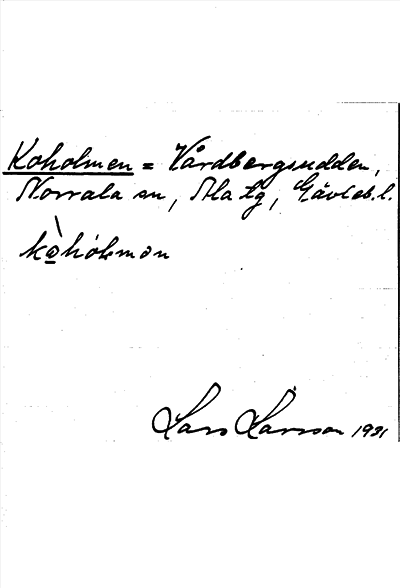 Koholmen = Vårdbergsudden,
Norrala sn, Ala tg, Gävleb. l.
kòhólmən
Lars Larsson 1931